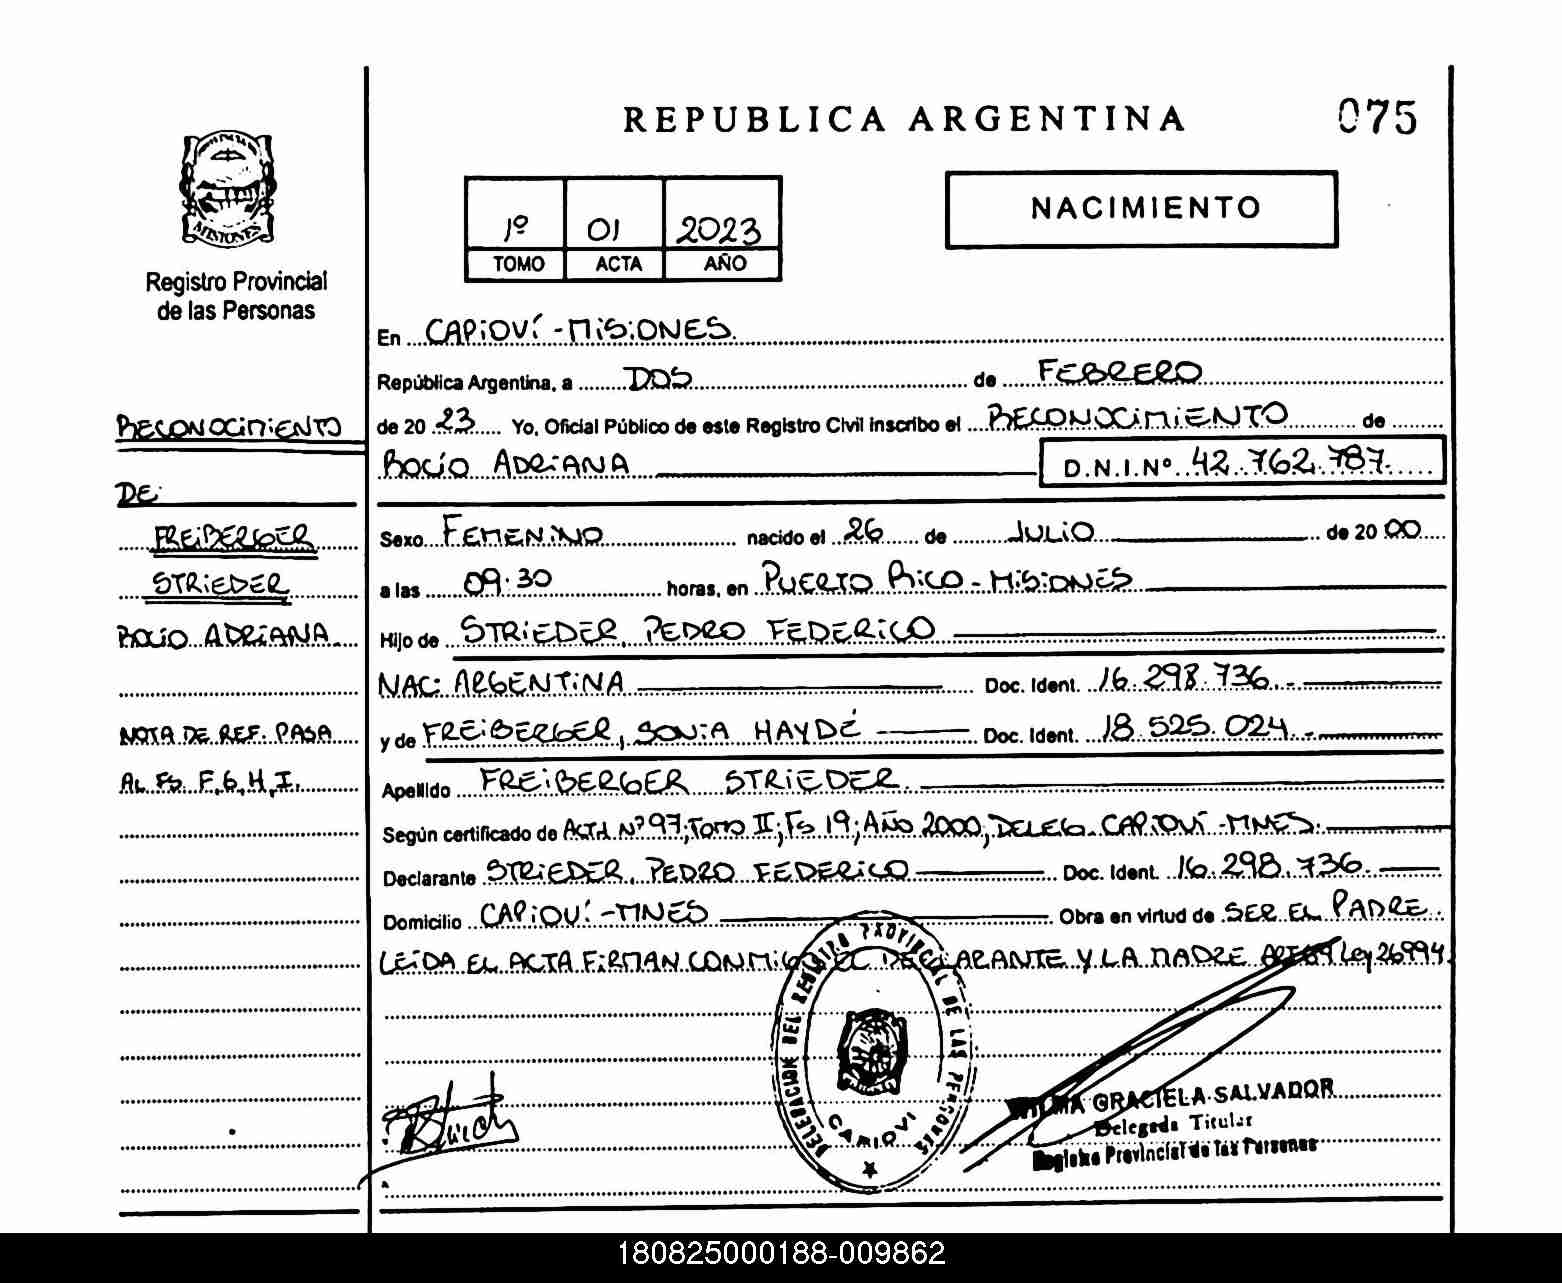 REPUBLICA ARGENTINA
075
MISIONES
Registro Provincial
de las Personas
1º 01 2023
TOMO ACTA AÑO
NACIMIENTO
En CAPIOVÍ - MISIONES.
República Argentina, a DOS de FEBRERO
de 20 23 Yo, Oficial Público de este Registro Civil inscribo el RECONOCIMIENTO de
ROCÍO ADRIANA D.N.I.Nº 42.762.787.
Sexo FEMENINO nacido el 26 de JULIO de 20 00
a las 09:30 horas, en PUERTO RICO - MISIONES
Hijo de STRIEDER, PEDRO FEDERICO
NAC: ARGENTINA Doc. Ident. 16.298.736.-
y de FREIBERGER, SONIA HAYDÉ Doc. Ident. 18.525.024.-
Apellido FREIBERGER STRIEDER.
Según certificado de ACTA Nº 97; TOMO II; FS 19; AÑO 2000; DELEG. CAPIOVÍ - MNES.
Declarante STRIEDER, PEDRO FEDERICO Doc. Ident. 16.298.736.
Domicilio CAPIOVÍ - MNES Obra en virtud de SER EL PADRE.
LEIDA EL ACTA FIRMAN CONMIGO EL DECLARANTE Y LA MADRE Ley 26994.
RECONOCIMIENTO
DE:
FREIBERGER
STRIEDER
ROCIO ADRIANA
NOTA DE REF. PASA
AL FS. F,G,H,I,
DELEGACION DEL REGISTRO PROVINCIAL DE LAS PERSONAS
CAPIOVI
GRACIELA SALVADOR
Delegada Titular
Registro Provincial de las Personas
180825000188-009862